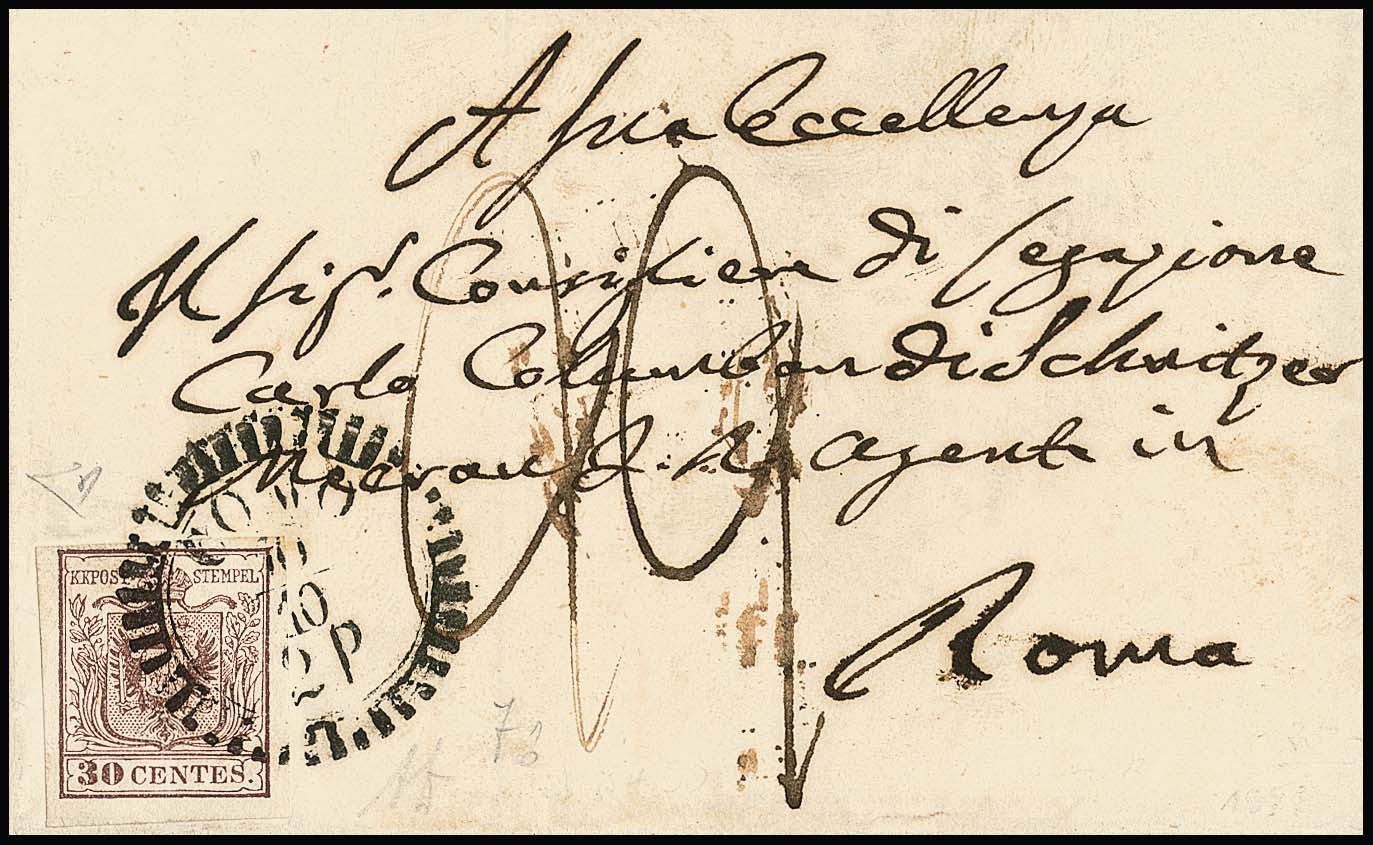 A sua Eccellenza
Al Sigr. Consigliere di legazione
Carlo Columban di Schnitzer
Meerau J. R. Agente in
Roma
COMO
10
10
2 P
KKPOST STEMPEL
30 CENTES.
76